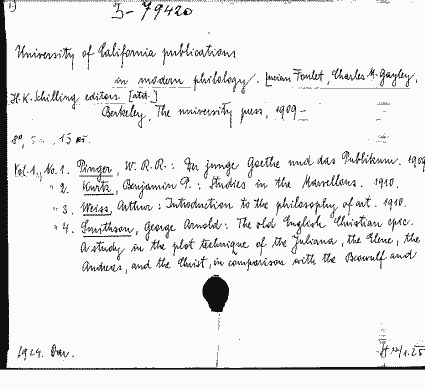 3-79420
University of California publications
in modern philology. Lucien Foulet, Charles M. Gayley,
H. K. Schilling editors [etc.]
Berkeley, The university press, 1909-
8º,
Vol. 1., No. 1. Pinger, W. R. R.: Der junge Goethe und das Publikum. 1909
" 2. Kurtz, Benjamin P.: Studies in the Marvellous. 1910.
" 3. Weiss, Arthur: Introduction to the philosophy of art. 1910.
" 4. Smithson, George Arnold: The old English Christian epic.
A study in the plot technique of the Juliana, the Elene, the
Andreas, and the Christ, in comparison with the Beowulf and
1924. Dar.